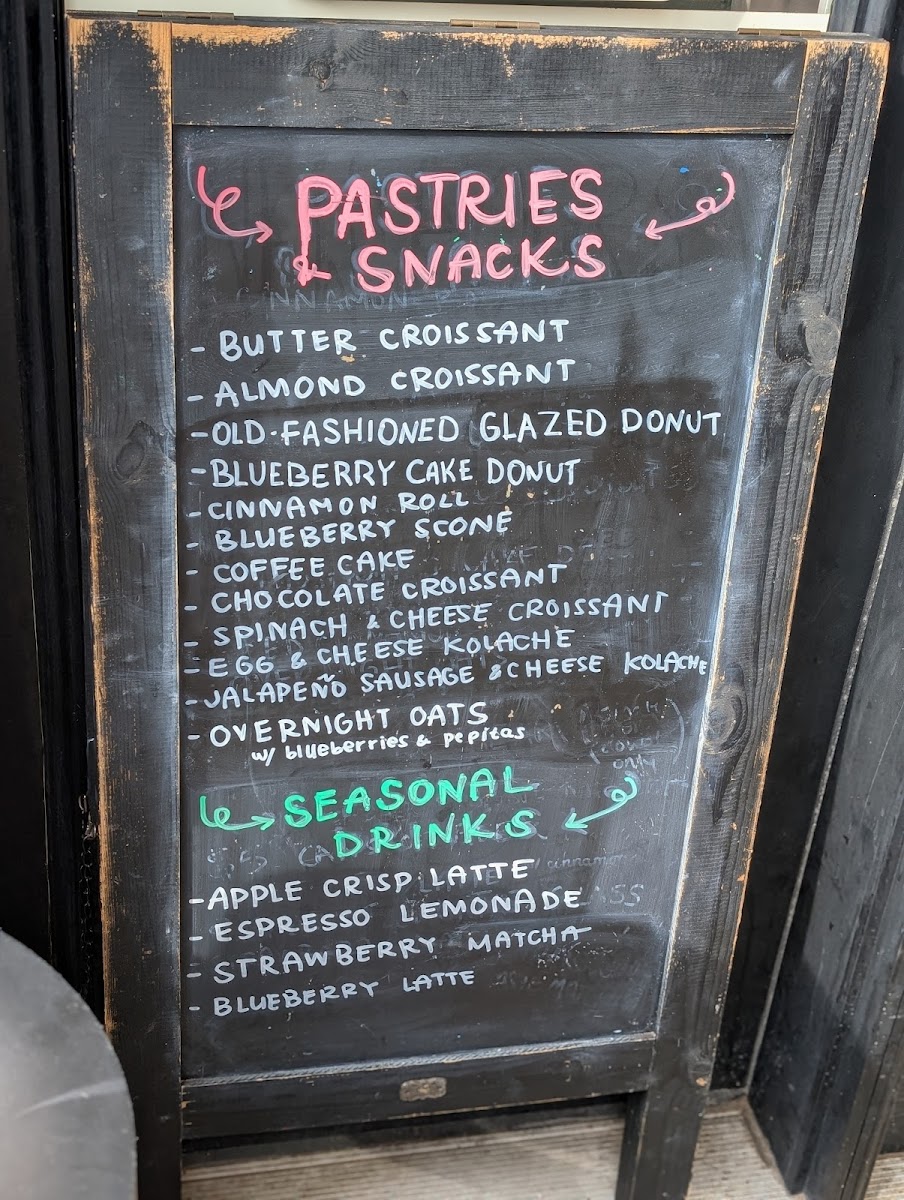 PASTRIES
& SNACKS
- BUTTER CROISSANT
- ALMOND CROISSANT
- OLD-FASHIONED GLAZED DONUT
- BLUEBERRY CAKE DONUT
- CINNAMON ROLL
- BLUEBERRY SCONE
- COFFEE CAKE
- CHOCOLATE CROISSANT
- SPINACH & CHEESE CROISSANT
- EGG & CHEESE KOLACHE
- JALAPEÑO SAUSAGE & CHEESE KOLACHE
- OVERNIGHT OATS
w/ blueberries & pepitas
SEASONAL
DRINKS
- APPLE CRISP LATTE
- ESPRESSO LEMONADE
- STRAWBERRY MATCHA
- BLUEBERRY LATTE